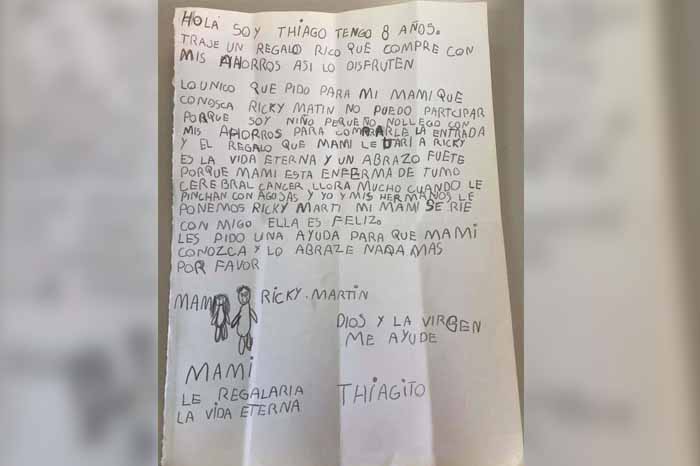 HOLA SOY THIAGO TENGO 8 AÑOS.
TRAJE UN REGALO RICO QUE COMPRE CON
MIS AHORROS ASI LO DISFRUTEN
LO UNICO QUE PIDO PARA MI MAMI QUE
CONOSCA RICKY MATIN NO PUEDO PARTCIPAR
PORQUE SOY NIÑO PEQUEÑO NOLLEGO CON
MIS AHORROS PARA COMPRARLE LA ENTRADA
Y EL REGALO QUE MAMI LE DARI A RICKY
ES LA VIDA ETERNA Y UN ABRAZO FUETE
PORQUE MAMI ESTA ENFERMA DE TUMO
CEREBRAL CANCER LLORA MUCHO CUANDO LE
PINCHAN CON AGOJAS Y YO Y MIS HERMANOS LE
PONEMOS RICKY MARTI MI MAMI SE RIE
CON MIGO ELLA ES FELIZ.
LES PIDO UNA AYUDA PARA QUE MAMI
CONOZCA Y LO ABRAZE NADA MAS
POR FAVOR
MAMI RICKY. MARTIN
DIOS Y LA VIRGEN
ME AYUDE
MAMI
LE REGALARIA
LA VIDA ETERNA
THIAGITO